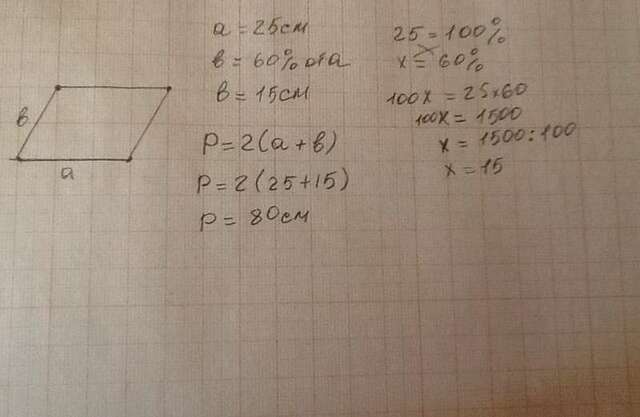 a = 25см
в = 60% от a
в = 15см
P = 2(a + в)
P = 2(25+15)
P = 80см
25 = 100%
x = 60%
100x = 25x60
100x = 1500
x = 1500:100
x = 15
в
a